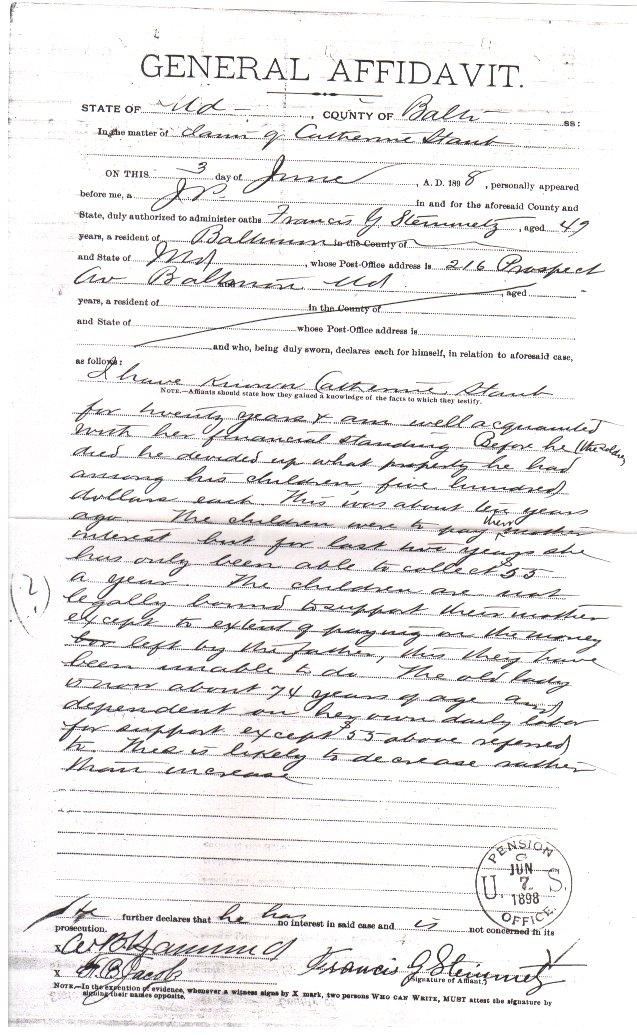 GENERAL AFFIDAVIT.
STATE OF Md , COUNTY OF Balto ss:
In the matter of claim of Catherine Staub
ON THIS 3 day of June , A. D. 1898 , personally appeared
before me, a J.P. in and for the aforesaid County and
State, duly authorized to administer oaths Francis G Steinmetz , aged 49
years, a resident of Baltimore in the County of
and State of Md , whose Post-Office address is 216 Prospect
Av Baltimore Md , aged
years, a resident of in the County of
and State of whose Post-Office address is
and who, being duly sworn, declares each for himself, in relation to aforesaid case,
as follows:
I have known Catherine Staub
NOTE.—Affiants should state how they gained a knowledge of the facts to which they testify.
for twenty years & am well acquainted
with her financial standing Before he (the soldier)
died he devided up what property he had
among his children five hundred
dollars each This was about years
ago The children were to pay their mother
interest but for last two years she
has only been able to collect $55
a year. The children are not
(?)
legally bound to support their mother
except to extent of paying on the money
left by the father, this they have
been unable to do The old lady
is now about 74 years of age and
dependent on her own daily labor
for support except $55 above referred
to This is likely to decrease rather
than increase
PENSION
JUN
U. 7 S.
1898
OFFICE.
He further declares that he has no interest in said case and is not concerned in its
prosecution.
X Hammond
X Jacob Francis G Steinmetz
(Signature of Affiant.)
NOTE.—In the execution of evidence, whenever a witness signs by X mark, two persons WHO CAN WRITE, MUST attest the signature by
signing their names opposite.